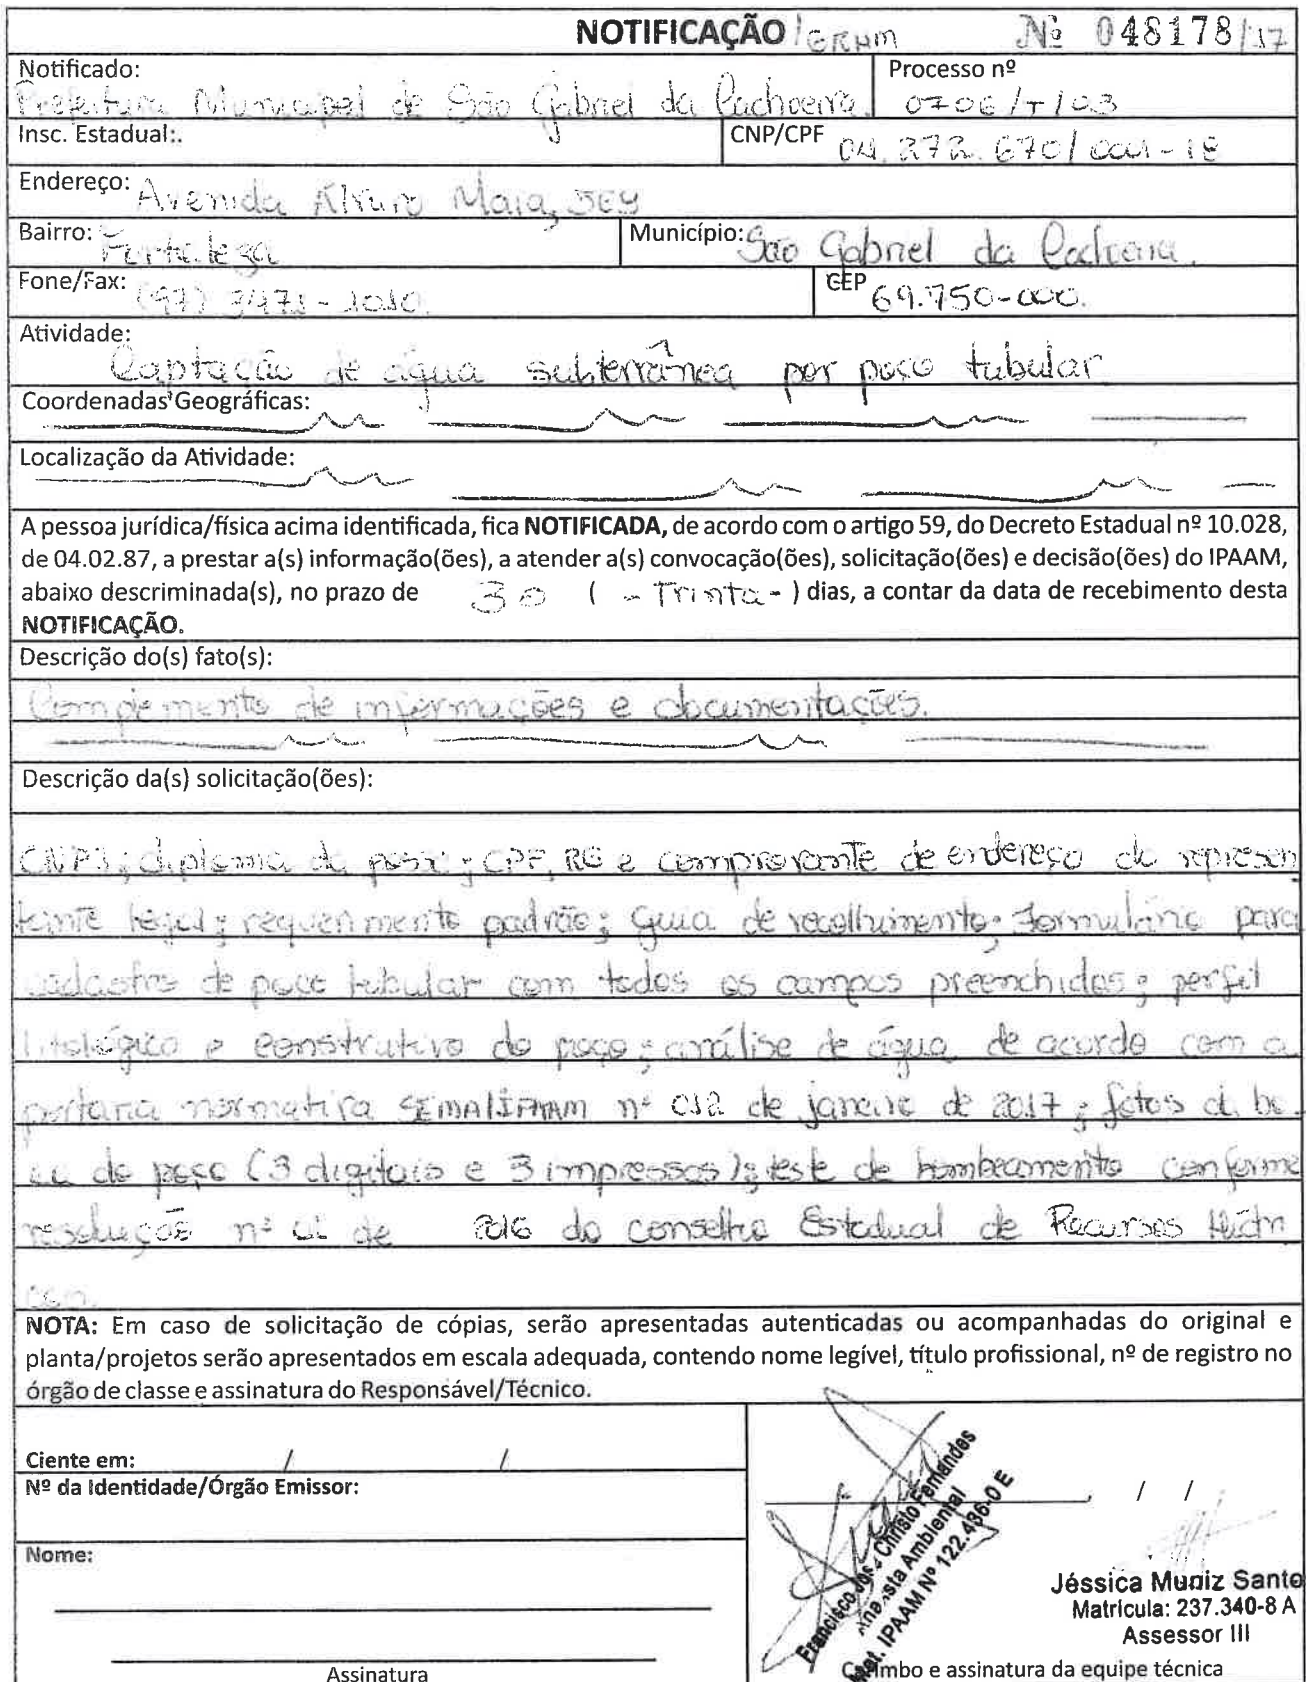 NOTIFICAÇÃO /GRHM Nº 048178/17
Notificado: Processo nº
Prefeitura Municipal de São Gabriel da Cachoeira 0706/T/03
Insc. Estadual:. CNP/CPF 04.272.670/0001-18
Endereço: Avenida Álvaro Maia, 569
Bairro: Fortaleza Município: São Gabriel da Cachoeira.
Fone/Fax: (97) 3471-1010 CEP 69.750-000.
Atividade:
Captação de água subterrânea por poço tubular
Coordenadas Geográficas:
Localização da Atividade:
A pessoa jurídica/física acima identificada, fica NOTIFICADA, de acordo com o artigo 59, do Decreto Estadual nº 10.028,
de 04.02.87, a prestar a(s) informação(ões), a atender a(s) convocação(ões), solicitação(ões) e decisão(ões) do IPAAM,
abaixo descriminada(s), no prazo de 30 ( - Trinta - ) dias, a contar da data de recebimento desta
NOTIFICAÇÃO.
Descrição do(s) fato(s):
Complemento de informações e documentações.
Descrição da(s) solicitação(ões):
CNPJ; diploma da posse; CPF, RG e comprovante de endereço do represen
tante legal; requerimento padrão; Guia de recolhimento; Formulário para
cadastro de poço tubular com todos os campos preenchidos; perfil
litológico e construtivo do poço; análise de água de acordo com a
portaria normativa SEMA/IPAAM nº 012 de janeiro de 2017; fotos da bo
ca do poço (3 digitais e 3 impressos); teste de bombeamento conforme
resolução nº 01 de 2016 do conselho Estadual de Recursos Hídri
cos.
NOTA: Em caso de solicitação de cópias, serão apresentadas autenticadas ou acompanhadas do original e
planta/projetos serão apresentados em escala adequada, contendo nome legível, título profissional, nº de registro no
órgão de classe e assinatura do Responsável/Técnico.
Ciente em: / /
Nº da Identidade/Órgão Emissor:
Nome:
Assinatura
, / /
Francisco José Christo Fernandes
Analista Ambiental
Mat. IPAAM Nº 122.436-0 E
Jéssica Muniz Santo
Matrícula: 237.340-8 A
Assessor III
Carimbo e assinatura da equipe técnica